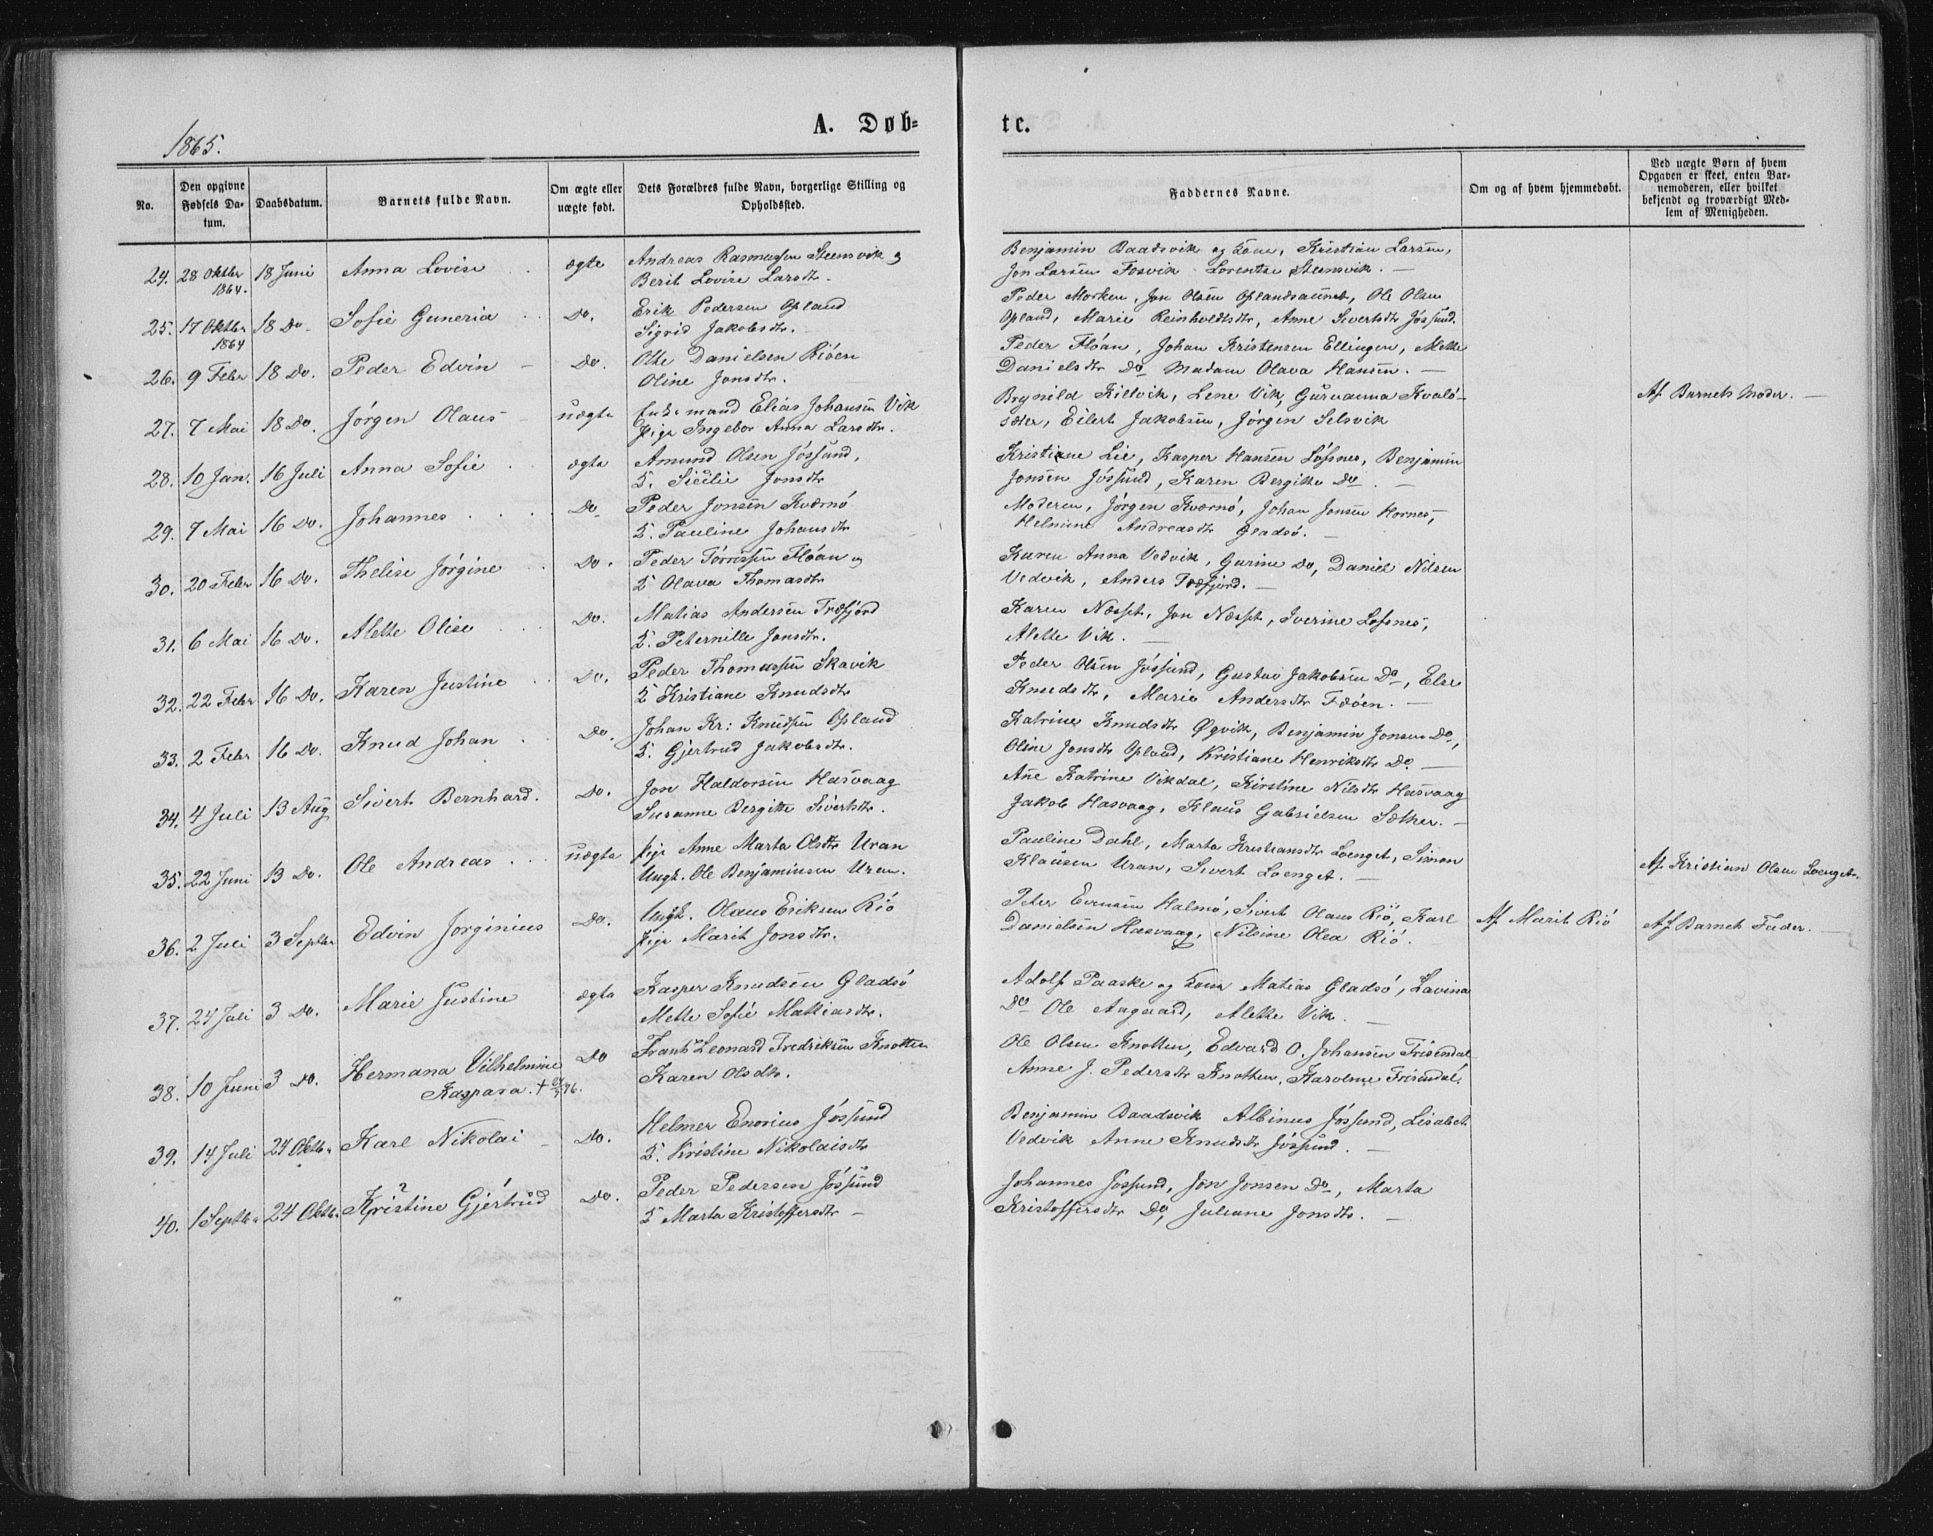 1865.
A. Døb-
te.
No.
Den opgivne Fødsels Da-
tum.
Daabsdatum.
Barnets fulde Navn.
Om ægte eller
uægte født.
Dets Forældres fulde Navn, borgerlige Stilling og
Opholdssted.
Faddernes Navne.
Om og af hvem hjemmedøbt.
Ved uægte Børn af hvem
Opgaven er skeet, enten Bar-
nemoderen, eller hvilket
bekjendt og troværdigt Med-
lem af Menigheden.
24. 28 Oktbr 1864. 18 Juni Anna Lovise ægte Andreas Rasmussen Steensvik og
Berit Lovise Larsdtr.
Benjamin Baadsvik og Kone, Kristian Larsen,
Jon Larsen Fosvik Lorentse Steensvik.
25. 17 Oktbr 1864 18 Do. Sofie Guneria Do. Erik Pedersen Opland
Sigrid Jakobsdtr.
Peder Morken, Jon Olsen Oplandsaunet, Ole Olsen
Opland, Marie Reinholdtsdtr, Anne Sivertsdtr Jøssund.
26. 9 Febr 18 Do. Peder Edvin Do. Otte Danielsen Riöen
Oline Jonsdtr.
Peder Flöan, Johan Kristensen Ellingen, Mette
Danielsdtr Do Madam Olava Hansen.
27. 7 Mai 18 Do. Jørgen Olaus uægte Enkemand Elias Johansen Vik
Pige Ingebor Anna Larsdtr.
Brynild Killvik, Lene Vik, Gurvanna Kvalö-
sæter, Eilert Jakobsen, Jørgen Selsvik
Af Barnets Moder.
28. 10 Jan. 16 Juli Anna Sofie ægte Amund Olsen Jøssund,
H. Sicilie Jonsdtr
Kristiane Lie, Kasper Hansen Löfsnes, Benjamin
Jonsen Jøssund, Karen Bergitte Do.
29. 7 Mai 16 Do. Johannes Do. Peder Jonsen Kværnö
H. Pauline Johansdtr
Moderen, Jørgen Kværnö, Johan Jonsen Hornes,
Helmine Andreasdtr Gladsö.
30. 20 Febr 16 Do. Thelise Jørgine Do. Peder Torrissen Flöan og
H Olava Thomasdtr
Karen Anna Vedvik, Gurine Do, Daniel Nilsen
Vedvik, Anders Træfjord.
31. 6 Mai 16 Do. Alette Olise Do. Matias Andersen Træfjord
H. Peternille Jonsdtr.
Karen Næsset, Jon Næsset, Iverine Løfsnes,
Alette Vik.
32. 22 Febr 16 Do. Karen Justine Do. Peder Thomassen Skavik
H Kristiane Knudsdtr
Peder Olsen Jøssund, Gustav Jakobsen Do, Else
Knudsdtr, Marie Andersdtr Fæöen.
33. 2 Febr 16 Do. Knud Johan Do. Johan Kr: Knudsen Opland
H. Gjertrud Jakobsdtr.
Katrine Knudsdtr Øgvik, Benjamin Jonsen Do,
Oline Jonsdtr Opland, Kristiane Henriksdtr Do.
34. 4 Juli 13 Aug Sivert Bernhard. Do. Jon Haldorsen Hasvaag
Susanne Bergitte Sivertsdtr.
Ane Katrine Vikdal, Kirstine Nilsdtr Hasvaag
Jakob Hasvaag, Klaus Gabrielsen Sæther.
35. 22 Juni 13 Do. Ole Andreas uægte Pige Anne Marta Olsdtr Uran
Ungk. Ole Benjaminsen Uran.
Pauline Dahl, Marta Kristiansdtr Loenget, Simon
Klausen Uran, Sivert Loenget.
Af Kristian Olsen Loenget.
36. 2 Juli 3 Septbr Edvin Jorginius Do. Ungk. Olaus Eriksen Riö
Pige Marit Jonsdtr.
Peter Evensen Halmö, Sivert Olaus Riö, Karl
Danielsen Hasvaag, Nilsine Olea Riö.
Af Marit Riö
Af Barnets Fader.
37. 24 Juli 3 Do. Marie Justine ægte Kasper Knudsen Gladsö
Mette Sofie Mathiasdtr.
Adolf Paaske og Kone Matias Gladsö, Lavina
Do Ole Aagaard, Alette Vik.
38. 10 Juni 3 Do. Hermana Vilhelmine
Kaspara. + Do Frants Leonard Fredriksen Knotten
Karen Olsdtr.
Ole Olsen Knotten, Edvard O. Johansen Frisendal
Anne J. Pedersdtr Knotten, Karoline Frisendal.
39. 14 Juli 24 Oktbr Karl Nikolai Do. Helmer Enorius Jössund
H. Kristine Nikolaisdtr
Benjamin Baadsvik Albinus Jössund, Lisabet
Vedvik Anne Knudsdtr Jössund.
40. 1 Septbr 24 Oktbr Kristine Gjertrud Do. Peder Pedersen Jössund
H Marta Kristoffersdtr
Johannes Jossund, Jon Jonsen Do, Marta
Kristoffersdtr Do, Juliane Jonsdtr.